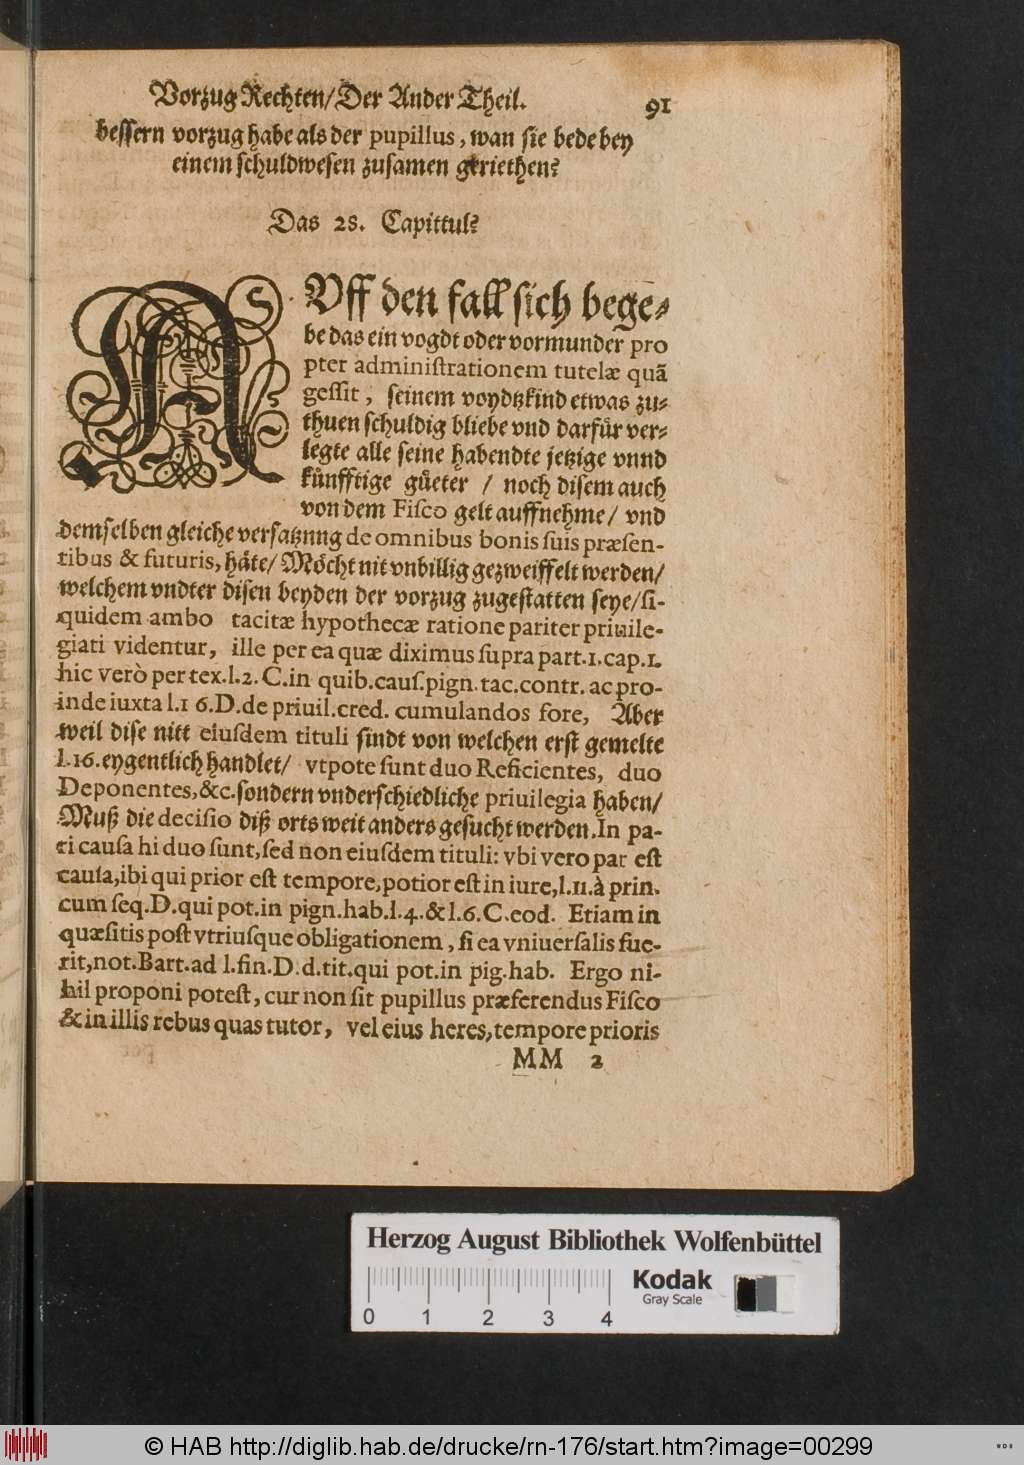 Vorzug Rechten/Der Ander Theil. 91
bessern vorzug habe als der pupillus, wan sie bede bey
einem schuldwesen zusamen geriethen?
Das 28. Capittul?
AVff den fall sich bege⸗
be das ein vogdt oder vormunder pro
pter adminiſtrationem tutelæ quã
geſſit, seinem voydtzkind etwas zu⸗
thuen schuldig bliebe vnd darfür ver⸗
legte alle seine habendte jetzige vnnd
künfftige güeter / noch disem auch
von dem Fiſco gelt auffnehme/ vnd
demselben gleiche versatznng de omnibus bonis ſuis præſen-
tibus & futuris, häte/ Möcht nit vnbillig gezweiffelt werden/
welchem vndter disen beyden der vorzug zugestatten seye/ſi-
quidem ambo tacitæ hypothecæ ratione pariter priuile-
giati videntur, ille per ea quæ diximus ſupra part.1.cap.1.
hic verò per tex.l.2.C.in quib.cauſ.pign.tac.contr. ac pro-
inde iuxta l.16.D.de priuil.cred. cumulandos fore, Aber
weil dise nitt eiuſdem tituli sindt von welchen erst gemelte
l.16.eygentlich handlet/ vtpote ſunt duo Reficientes, duo
Deponentes,&c.sondern vnderschiedliche priuilegia haben/
Muß die deciſio diß orts weit anders gesucht werden.In pa-
ri cauſa hi duo ſunt,ſed non eiuſdem tituli: vbi vero par eſt
cauſa,ibi qui prior eſt tempore,potior eſt in iure,l.11.à prin.
cum ſeq.D.qui pot.in pign.hab.l.4.&l.6.C.eod. Etiam in
quæſitis poſt vtriuſque obligationem, ſi ea vniuerſalis fue-
rit,not.Bart.ad l.fin.D.d.tit.qui pot.in pig.hab. Ergo ni-
hil proponi poteſt, cur non ſit pupillus præferendus Fiſco
& in illis rebus quas tutor, vel eius heres,tempore prioris
MM 2
Herzog August Bibliothek Wolfenbüttel
Kodak
Gray Scale
0 1 2 3 4
© HAB http://diglib.hab.de/drucke/rn-176/start.htm?image=00299